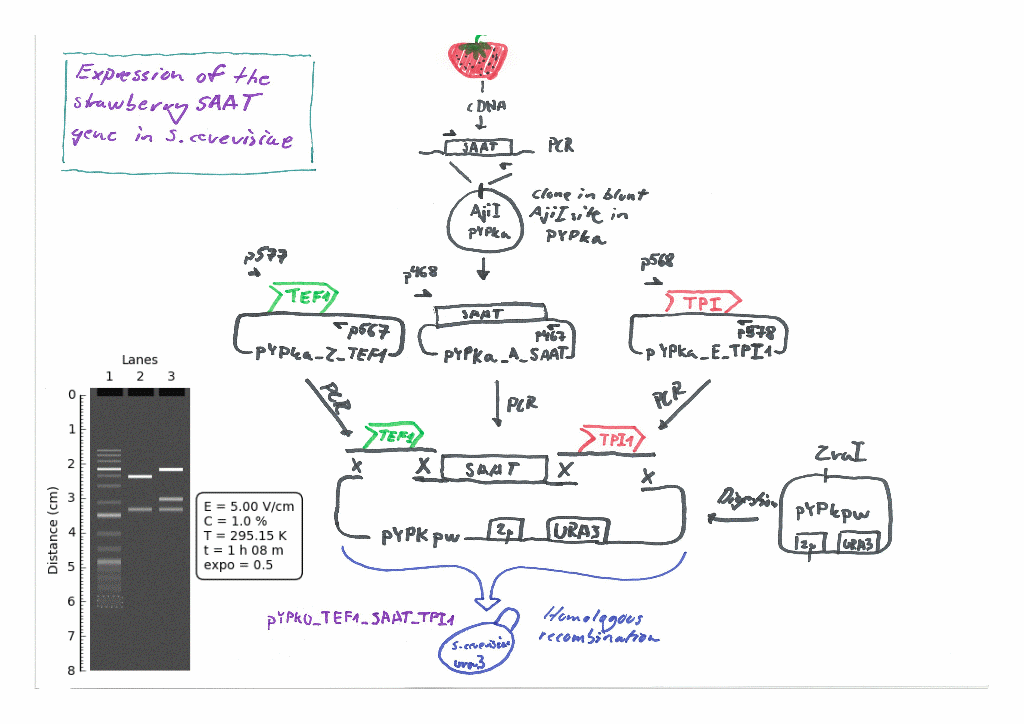 Expression of the
strawberry SAAT
gene in S. cerevisiae
cDNA
SAAT
PCR
AjiI
pYPKa
Clone in blunt
AjiI site in
pYPKa
p577
TEF1
p567
pYPKa_Z_TEF1
p468
SAAT
p467
pYPKa_A_SAAT
p568
TPI
p578
pYPKa_E_TPI1
PCR
PCR
PCR
TEF1
TPI1
X
X
SAAT
X
X
pYPKpw
2µ
URA3
Digestion
ZraI
pYPKpw
2µ
URA3
pYPK0_TEF1_SAAT_TPI1
S. cerevisiae
ura3
Homologous
recombination
Lanes
1 2 3
Distance (cm)
0
1
2
3
4
5
6
7
8
E = 5.00 V/cm
C = 1.0 %
T = 295.15 K
t = 1 h 08 m
expo = 0.5